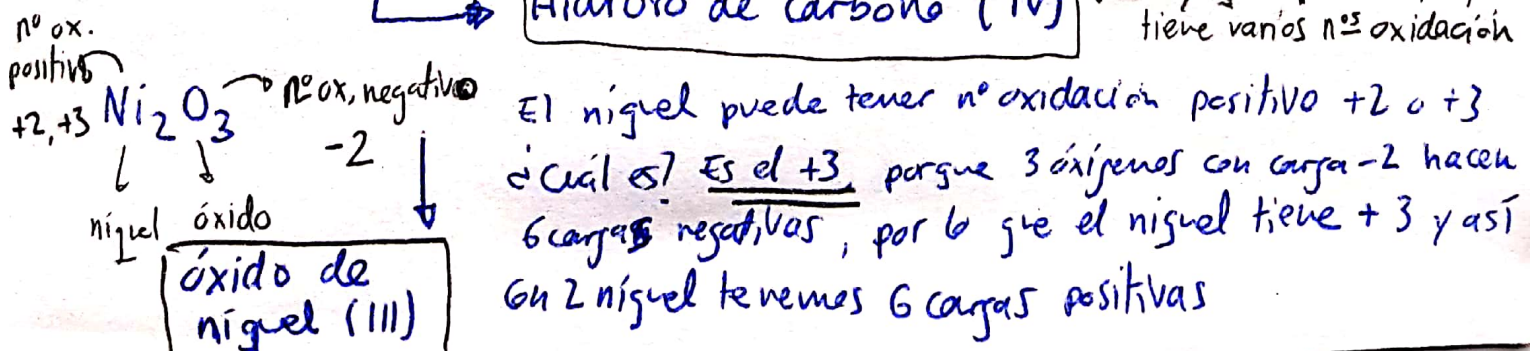 Hidruro de carbono (IV)
tiene varios nºs oxidación
nº ox.
positivo
+2, +3 Ni2O3
nº ox, negativo
-2
níquel óxido
óxido de
níquel (III)
El níquel puede tener nº oxidación positivo +2 o +3
¿Cuál es? Es el +3, porque 3 oxígenos con carga -2 hacen
6 cargas negativas, por lo que el níquel tiene +3 y así
en 2 níquel tenemos 6 cargas positivas